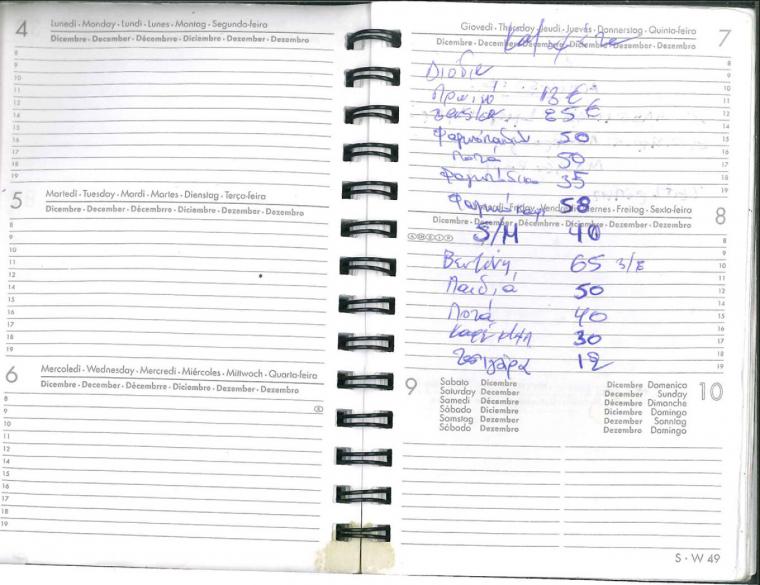 4 Lunedì · Monday · Lundi · Lunes · Montag · Segunda-feira
Dicembre · December · Décembre · Diciembre · Dezember · Dezembro
8
9
10
11
12
14
15
16
17
18
19
5 Martedì · Tuesday · Mardi · Martes · Dienstag · Terça-feira
Dicembre · December · Décembre · Diciembre · Dezember · Dezembro
8
9
10
11
12
14
15
16
17
18
19
6 Mercoledì · Wednesday · Mercredi · Miércoles · Mittwoch · Quarta-feira
Dicembre · December · Décembre · Diciembre · Dezember · Dezembro
8
9
10
11
12
14
15
16
17
18
19
Giovedì · Thursday · Jeudi · Jueves · Donnerstag · Quinta-feira 7
Dicembre · December · Décembre · Diciembre · Dezember · Dezembro
Διόδια
Πρωινό 13 €
25 €
50
Ποτά 50
35
58
Venerdì · Friday · Vendredi · Viernes · Freitag · Sexta-feira 8
Dicembre · December · Décembre · Diciembre · Dezember · Dezembro
S/M 40
Βενζίνη 65
Παιδιά 50
Ποτά 40
30
Τσιγάρα 12
9 Sabato Dicembre
Saturday December
Samedi Décembre
Sábado Diciembre
Samstag Dezember
Sábado Dezembro
Dicembre Domenica 10
December Sunday
Décembre Dimanche
Diciembre Domingo
Dezember Sonntag
Dezembro Domingo
S · W 49